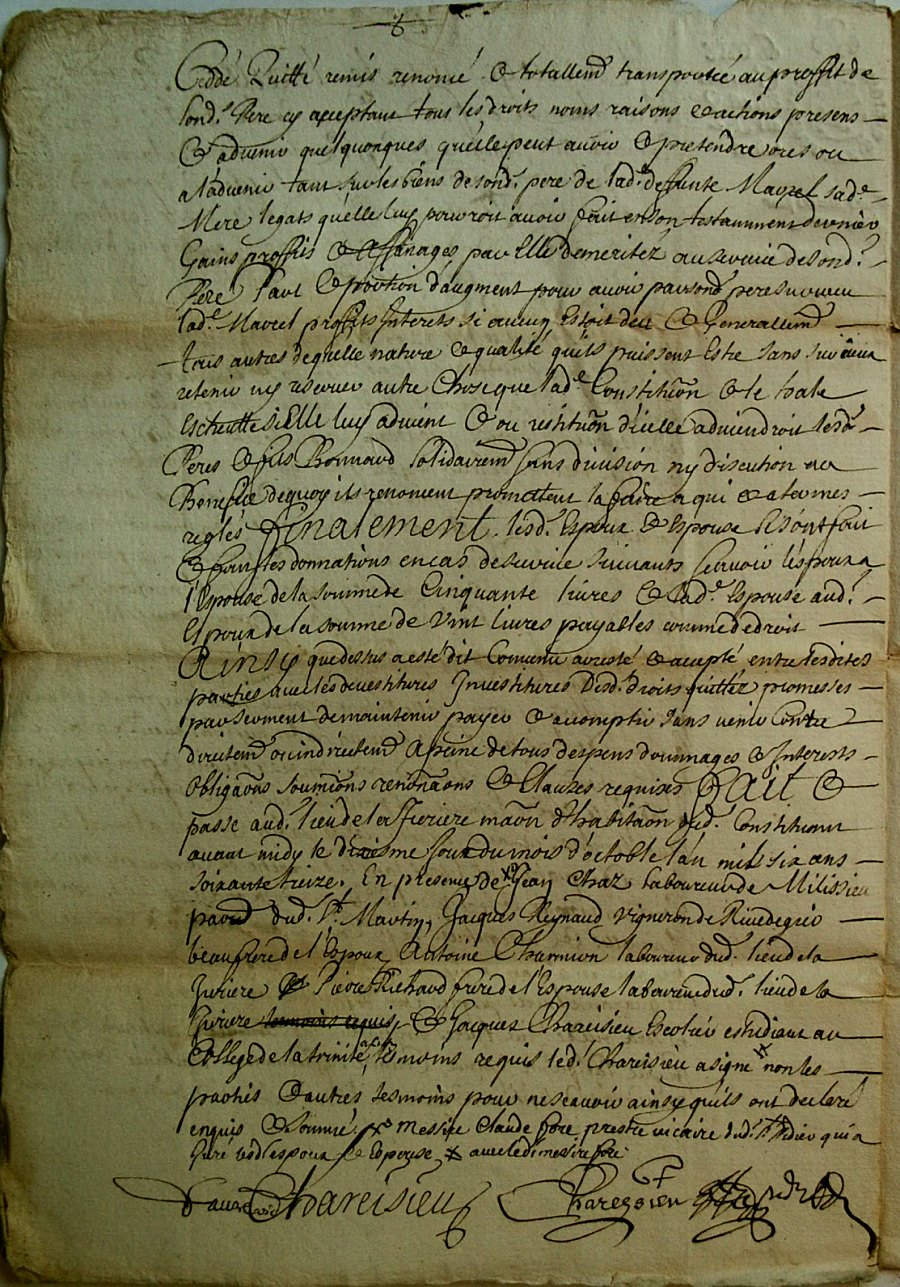 Ceddé Quitté remis renoncé & totallemt transportée au proffit de
sond. Pere cy aceptant tous les droits noms raisons & actions presens
& advenir quelquonques qu'elle peut avoir & pretendre ores ou
a l'advenir tant sur les biens de sond. pere de lade. deffunte Mavrel sade.
Mere legats qu'elle luy pourroit avoir fait en son testamment dernier
Gains proffits & affanages par Elle demeritez au service de sond.
Pere part & portion d'augment pour avoir par sond. pere survecu
lade. Mavrel proffits Interets si aucun Estoit deu & Generallemt
tous autres de quelle nature & qualité qu'ils puissent Estre sans
retenir ny reserver autre Chose que lade. Constitution & le
Escheutte si Elle luy advient & ou restituon d'icelle adviendroit lesd.
Peres & fils Bonnard solidairemt sans division ny discution au
Benefice de quoy ils renoncent promettent la faire a qui & a termes
reglés finalement lesd. Espoux & Espouse se sont fait
& font les donnations en cas de survie suivants sçavoir l'espoux a
l'Espouse de la somme de Cinquante livres & lade. Espouse aud.
Espoux de la somme de vint livres payables comme de droit
Ainsy que dessus a esté dit Convenu aresté & acepté entre lesdites
parties avec les devestitures Investitures desd. droits quittez promesses
par serment de maintenir payer & accomplir sans venir Contre
directemt ou indirectemt a peine de tous despens dommages & Interests
obligaons soumions renonaons & Clauzes requises fait &
passe aud. lieu de la Juriere maon d'habitaon dud. Constituant
avant midy le diziesme Jour du mois d'octobre l'an mil six cens
soixante treize. En presence de Jean Chaz laboureur de Milissieu
parr dud. St. Martin, Jacques Reynaud vigneron de Rivedegier
beaufrere de l'Espoux Antoine Charmion laboureur dud. lieu de la
Juriere & Pierre Richaud frere de l'Espouse laboureur dud. lieu de la
Juriere tesmoins requis, & Jacques Chareisieu Escolier estudiant au
College de la trinité, tesmoins requis led. Chareisieu a signé non les
parties & autres tesmoins pour ne sçavoir ainsy qu'ils ont declaré
enquis & sommé messire Claude fore prestre vicaire dud. St. qui a
lesd. espoux & Espouse avec led. messire fore
Chareisieu Chareysieu